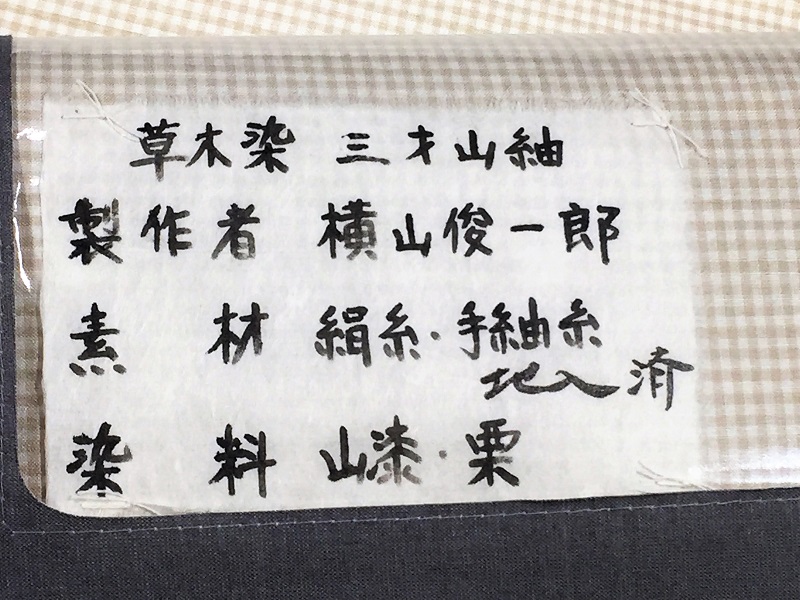 草木染 三才山紬
製作者 横山俊一郎
素材 絹糸・手紬糸
地入済
染料 山漆・栗